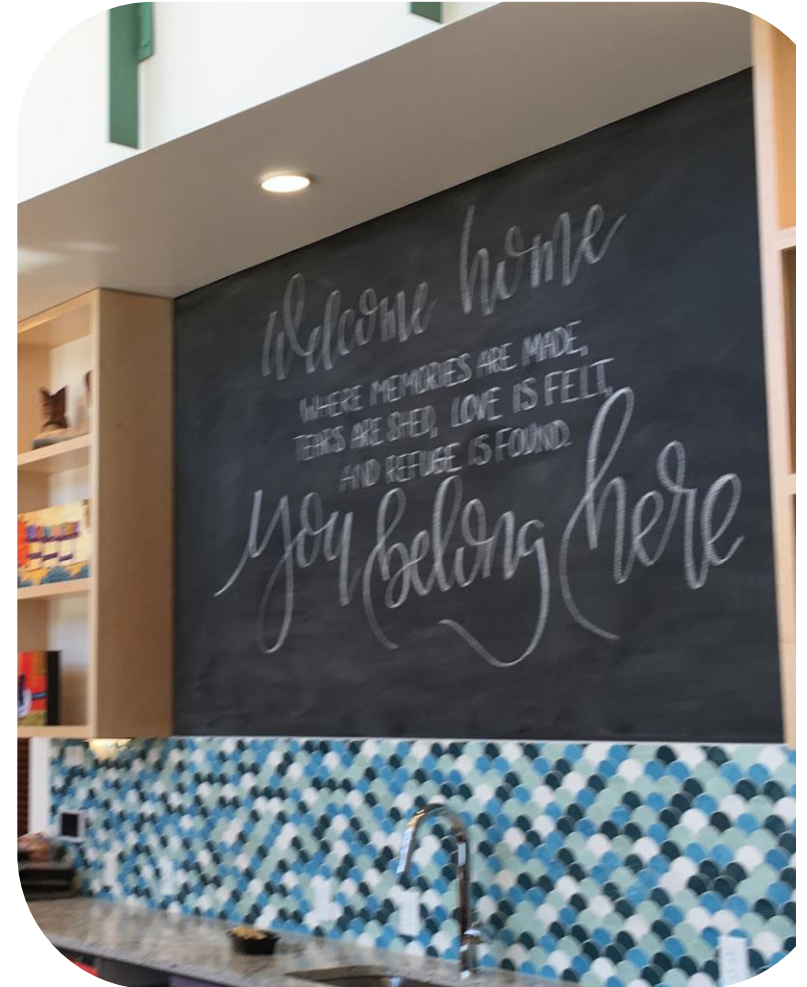 Welcome home
WHERE MEMORIES ARE MADE,
TEARS ARE SHED, LOVE IS FELT,
AND REFUGE IS FOUND.
you belong here